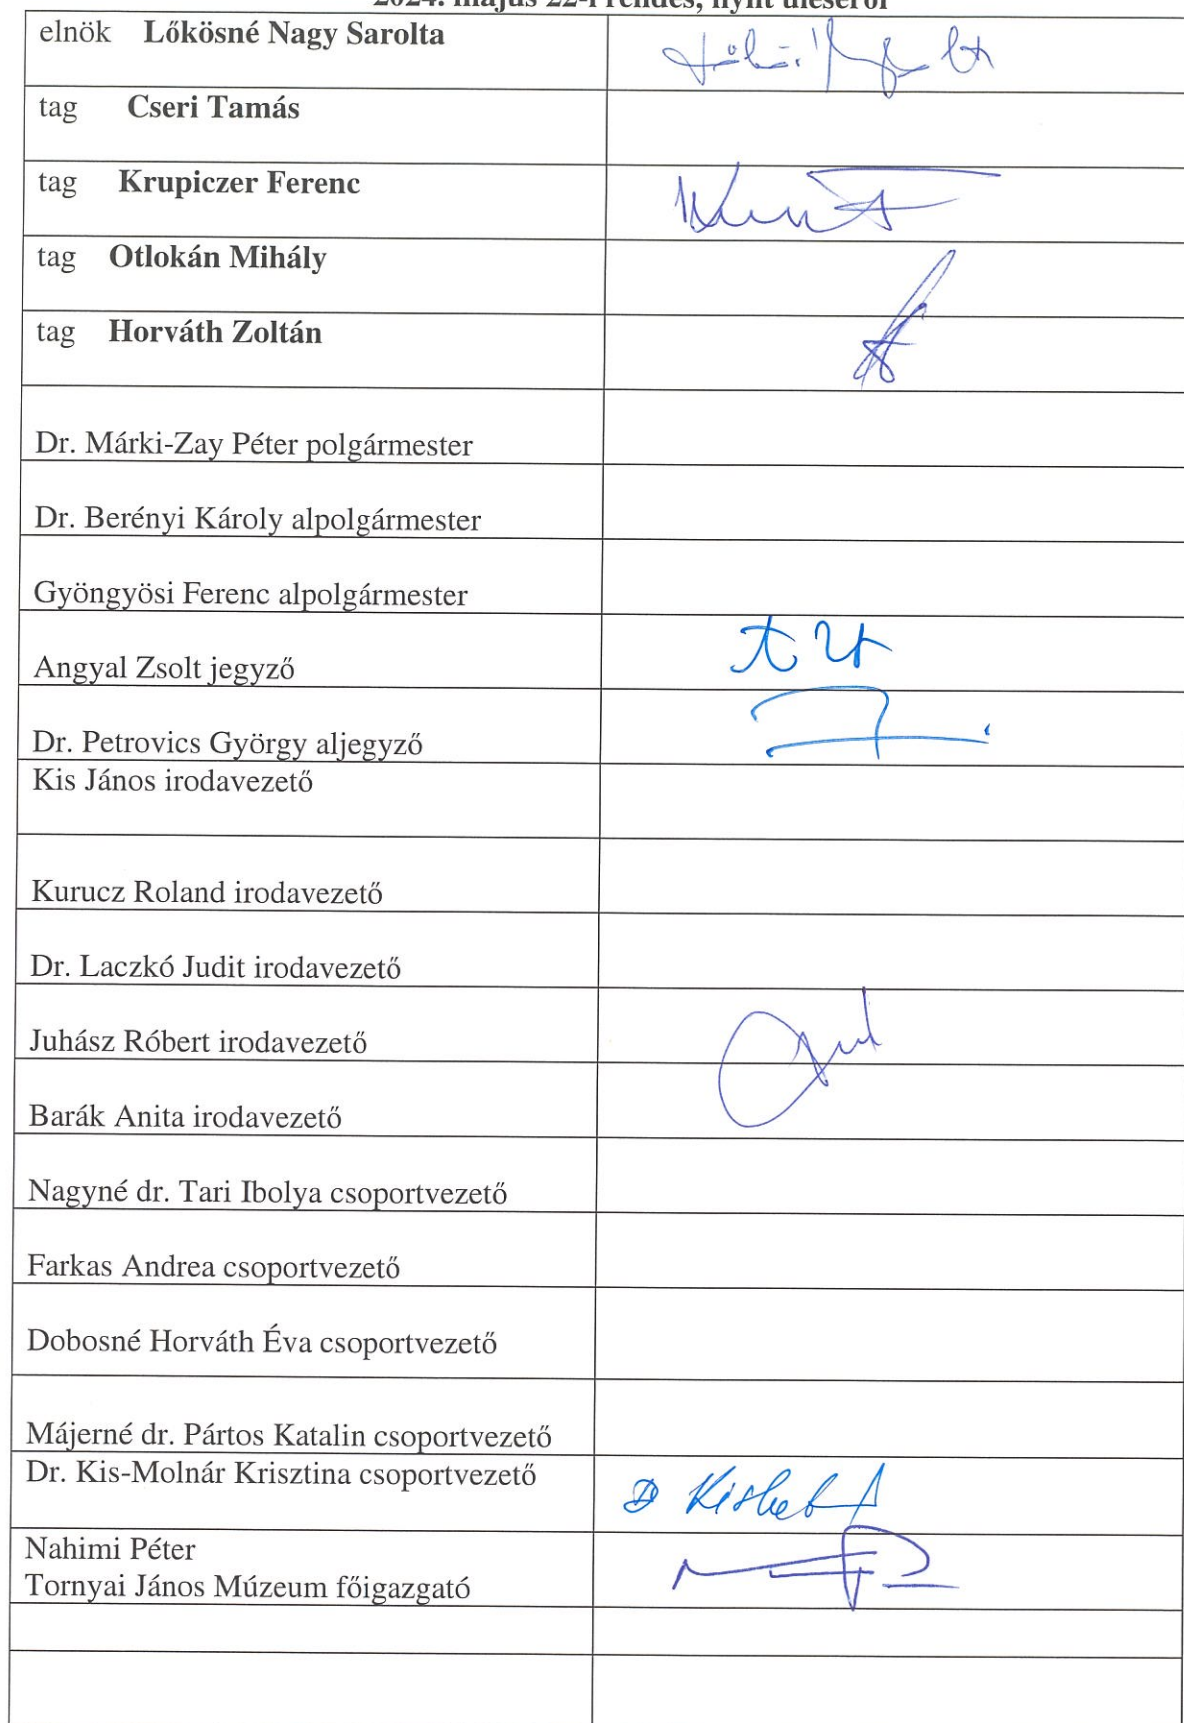 2024. május 22-i rendes, nyílt üléséről
elnök Lőkösné Nagy Sarolta
tag Cseri Tamás
tag Krupiczer Ferenc
tag Otlokán Mihály
tag Horváth Zoltán
Dr. Márki-Zay Péter polgármester
Dr. Berényi Károly alpolgármester
Gyöngyösi Ferenc alpolgármester
Angyal Zsolt jegyző
Dr. Petrovics György aljegyző
Kis János irodavezető
Kurucz Roland irodavezető
Dr. Laczkó Judit irodavezető
Juhász Róbert irodavezető
Barák Anita irodavezető
Nagyné dr. Tari Ibolya csoportvezető
Farkas Andrea csoportvezető
Dobosné Horváth Éva csoportvezető
Májerné dr. Pártos Katalin csoportvezető
Dr. Kis-Molnár Krisztina csoportvezető
Nahimi Péter
Tornyai János Múzeum főigazgató